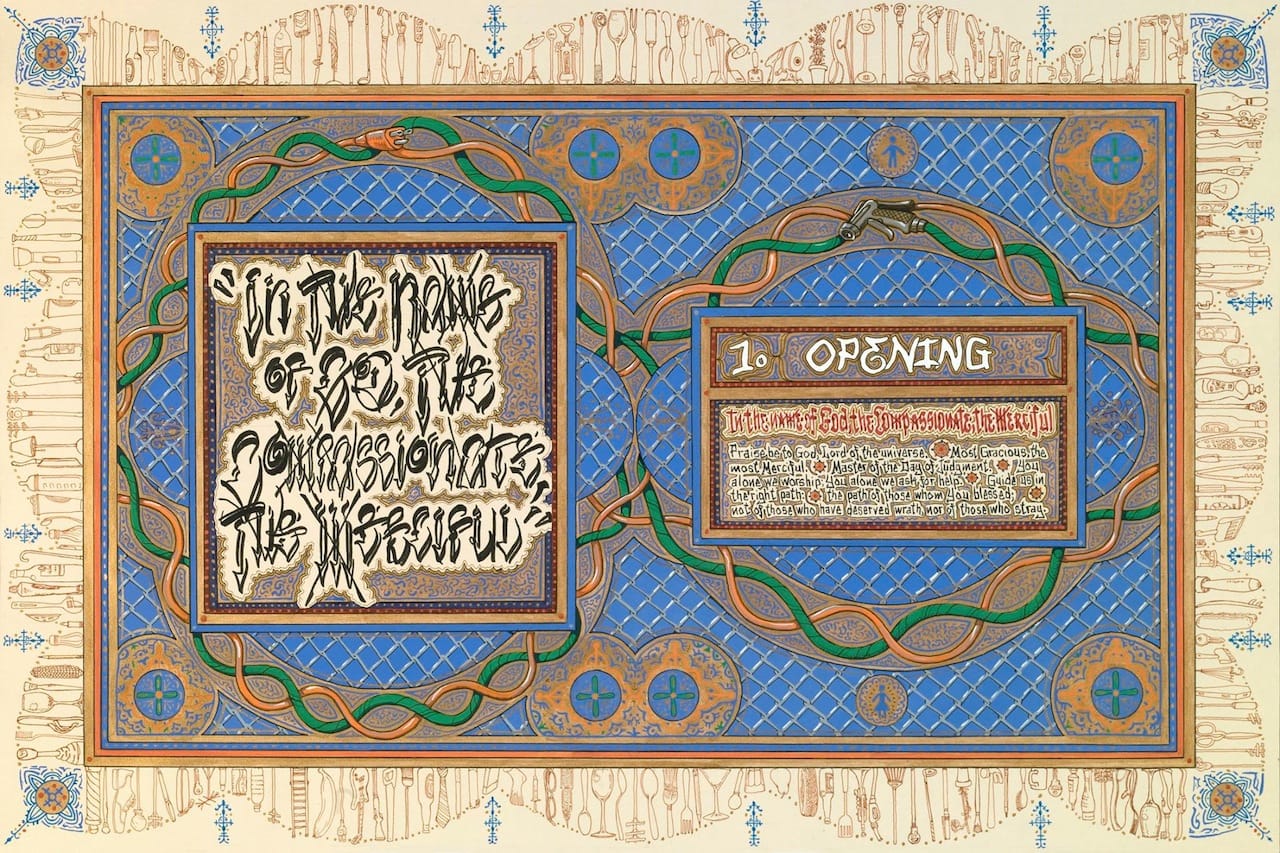 "In the Name
of God, the
Compassionate,
the Merciful"
1. OPENING
In the name of God, the Compassionate, the Merciful
Praise be to God, Lord of the universe. Most Gracious, the
most Merciful. Master of the Day of Judgment. You
alone we worship. You alone we ask for help. Guide us in
the right path; the path of those whom You blessed;
not of those who have deserved wrath, nor of those who stray.